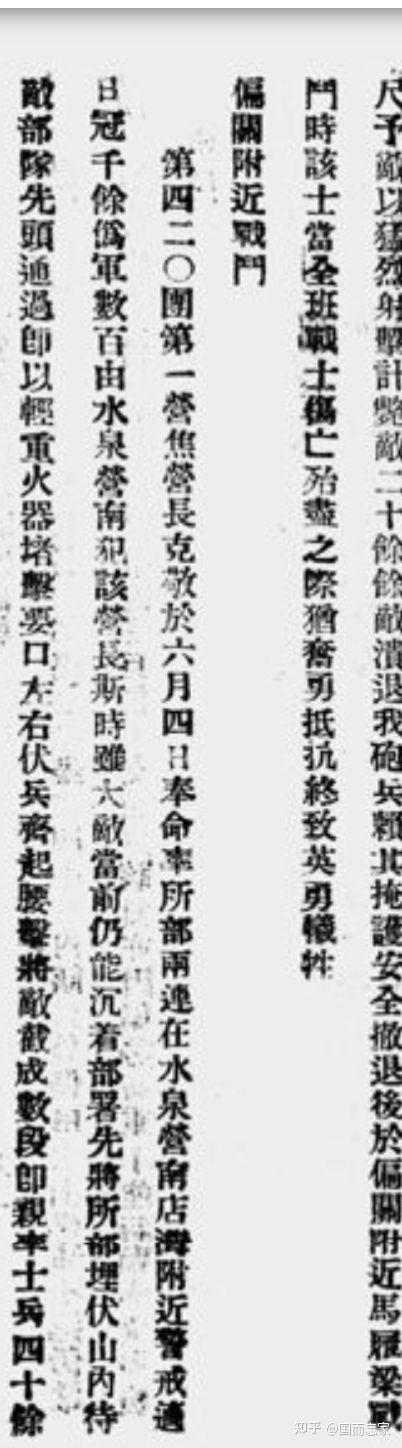 尺予敵以猛烈射擊計斃敵二十餘餘敵潰退我砲兵賴其掩護安全撤退後於偏關附近馬履梁戰
鬥時該士當全班戰士傷亡殆盡之際猶奮勇抵抗終致英勇犧牲
偏關附近戰鬥
第四二〇團第一營焦營長克敬於六月四日奉命率所部兩連在水泉營南店灣附近警戒適
日冠千餘偽軍數百由水泉營南犯該營長斯時雖大敵當前仍能沉着部署先將所部埋伏山內待
敵部隊先頭通過卽以輕重火器堵擊要口左右伏兵齊起腰擊將敵截成數段卽親率士兵四十餘
知乎 @国而志家